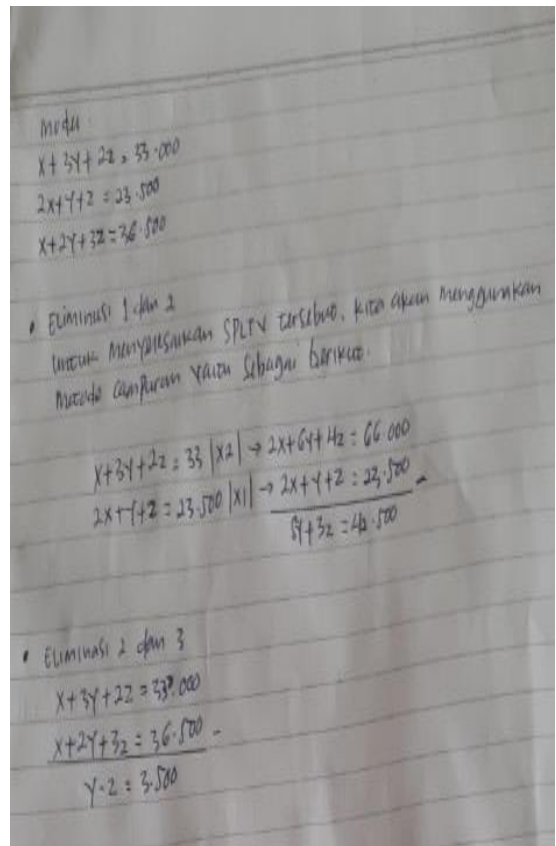 Modu
x + 3y + 2z = 33.000
2x + y + z = 23.500
x + 2y + 3z = 36.500
• Eliminasi 1 dan 2
untuk menyelesaikan SPLTV tersebut, kita akan menggunakan
metode campuran yaitu sebagai berikut.
x + 3y + 2z = 33 |x2| → 2x + 6y + 4z = 66.000
2x + y + z = 23.500 |x1| → 2x + y + z = 23.500 -
5y + 3z = 42.500
• Eliminasi 2 dan 3
x + 3y + 2z = 33.000
x + 2y + 3z = 36.500 -
y - z = 3.500